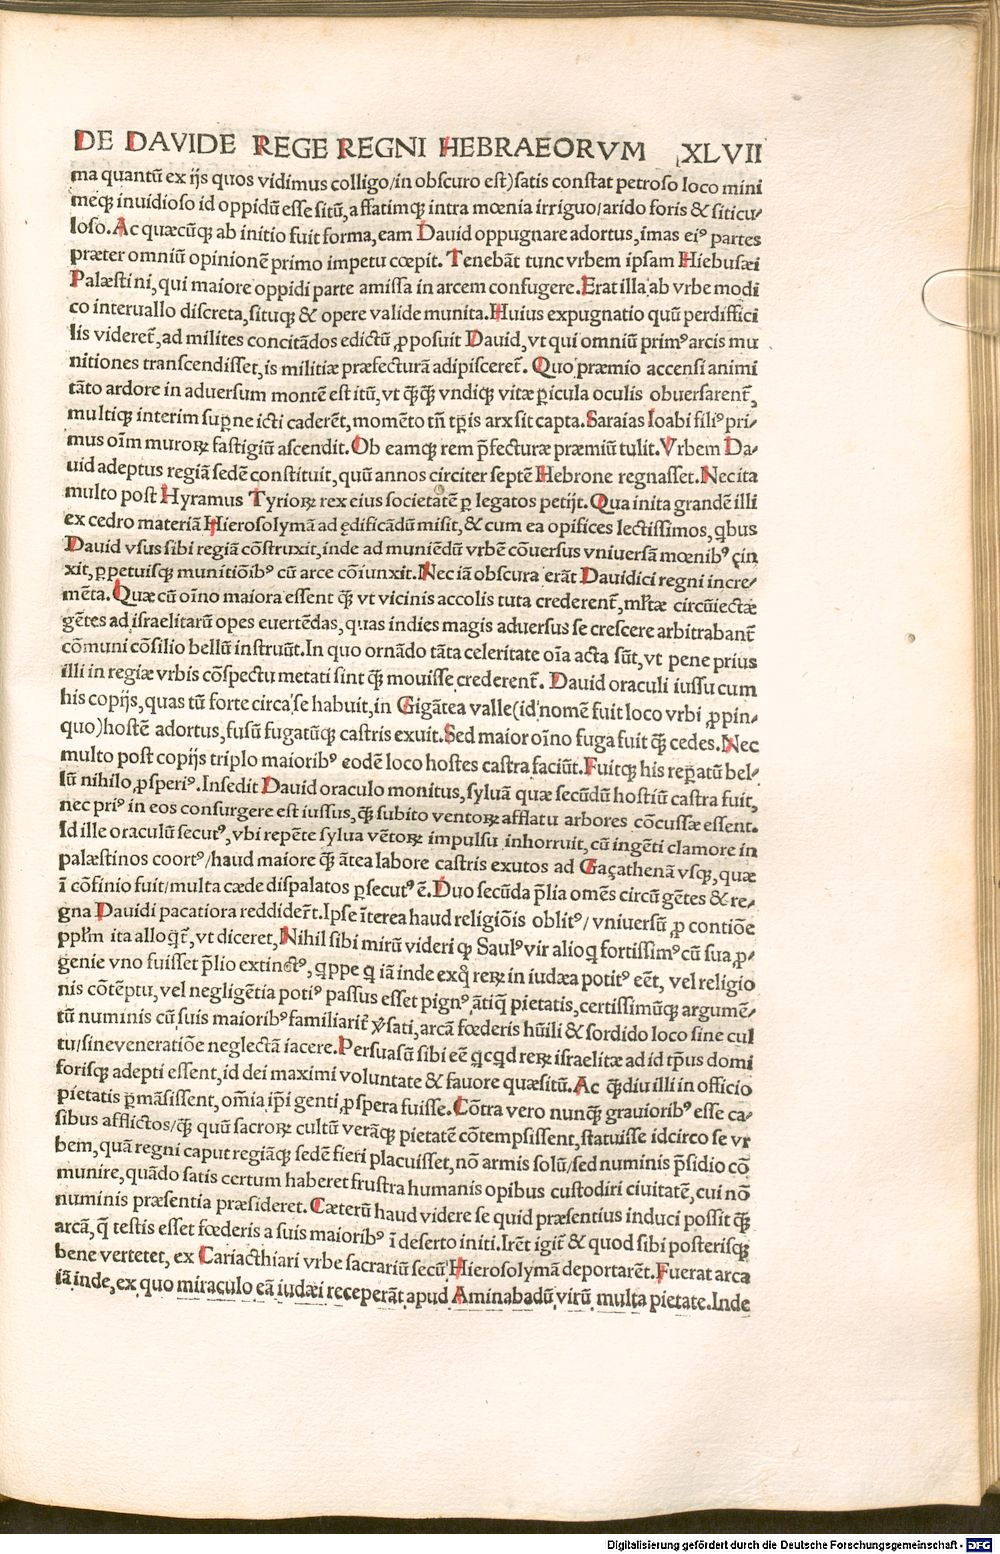 DE DAVIDE REGE REGNI HEBRAEORVM XLVII
ma quantũ ex ijs quos vidimus colligo/in obscuro est)satis constat petroso loco mini
meqꝫ inuidioso id oppidũ esse sitũ,affatimqꝫ intra mœnia irriguo/arido foris & siticu/
loso.Ac quæcũqꝫ ab initio fuit forma,eam Dauid oppugnare adortus,imas eiꝰ partes
præter omniũ opinionẽ primo impetu cœpit. Tenebãt tunc vrbem ipsam Hiebusæi
Palæstini,qui maiore oppidi parte amissa in arcem confugere.Erat illa ab vrbe modi
co interuallo discreta,situqꝫ & opere valide munita.Huius expugnatio quũ perdiffici
lis videret̃,ad milites concitãdos edictũ ꝓposuit Dauid,vt qui omniũ primꝰ arcis mu
nitiones transcendisset,is militiæ præfecturã adipisceret̃. Quo præmio accensi animi
tãto ardore in aduersum montẽ est itũ,vt q̃q̃ vndiqꝫ vitæ ꝑicula oculis obuersarent̃,
multiqꝫ interim suꝑne icti caderẽt,momẽto tñ tꝑis arx sit capta.Saraias Ioabi filiꝰ pri/
mus oĩm muroꝝ fastigiũ ascendit.Ob eamqꝫ rem p̃fecturæ præmiũ tulit.Vrbem Da/
uid adeptus regiã sedẽ constituit,quũ annos circiter septẽ Hebrone regnasset.Nec ita
multo post Hyramus Tyrioꝝ rex eius societatẽ ꝑ legatos petijt.Qua inita grandẽ illi
ex cedro materiã Hierosolymã ad ędificãdũ misit,& cum ea opifices lectissimos,qbus
Dauid vsus sibi regiã cõstruxit,inde ad muniẽdũ vrbẽ cõuersus vniuersã mœnibꝰ çin
xit,ꝑpetuisqꝫ munitiõibꝰ cũ arce cõiunxit.Nec iã obscura erãt Dauidici regni incre/
mẽta.Quæ cũ oĩno maiora essent q̃ꝫ vt vicinis accolis tuta crederent̃,mltæ circũiectæ
gẽtes ad israelitarũ opes euertẽdas,quas indies magis aduersus se crescere arbitrabant̃
cõmuni cõsilio bellũ instruũt.In quo ornãdo tãta celeritate oĩa acta sũt,vt pene prius
illi in regiæ vrbis cõspectu metati sint q̃ꝫ mouisse crederent̃. Dauid oraculi iussu cum
his copijs,quas tũ forte circa se habuit,in Gigãtea valle(id nomẽ fuit loco vrbi ꝓpin/
quo)hostẽ adortus,fusũ fugatũqꝫ castris exuit.Sed maior oĩno fuga fuit q̃ꝫ cedes.Nec
multo post copijs triplo maioribꝰ eodẽ loco hostes castra faciũt.Fuitqꝫ his reꝑatũ bel/
lũ nihilo ꝓsperiꝰ.Insedit Dauid oraculo monitus,syluã quæ secũdũ hostiũ castra fuit,
nec priꝰ in eos consurgere est iussus,q̃ꝫ subito ventoꝝ afflatu arbores cõcussæ essent.
Id ille oraculũ secutꝰ,vbi repẽte sylua vẽtoꝝ impulsu inhorruit,cũ ingẽti clamore in
palæstinos coortꝰ/haud maiore q̃ꝫ ãtea labore castris exutos ad Gaçathenã vsqꝫ,quæ
ĩ cõfinio fuit/multa cæde dispalatos ꝑsecutꝰ ẽ.Duo secũda p̃lia omẽs circũ gẽtes & re/
gna Dauidi pacatiora reddider̃t.Ipse ĩterea haud religiõis oblitꝰ/ vniuersũ ꝓ contiõe
pplm̃ ita alloqt̃,vt diceret,Nihil sibi mirũ videri qꝙ Saulꝰ vir alioq fortissimꝰ cũ sua ꝓ/
genie vno fuisset p̃lio extinctꝰ,qppe q iã inde exq̃ reꝝ in iudæa potitꝰ eẽt, vel religio
nis cõtẽptu,vel negligẽtia potiꝰ passus esset pignꝰ ãtiq̃ pietatis,certissimũqꝫ argumẽ/
tũ numinis cũ suis maioribꝰ familiarit̃ ꝟsati,arcã fœderis hũili & sordido loco sine cul
tu/sine veneratiõe neglectã iacere.Persuasũ sibi eẽ qcqd reꝝ israelitæ ad id tp̃us domi
forisqꝫ adepti essent,id dei maximi voluntate & fauore quæsitũ.Ac q̃ꝫdiu illi in officio
pietatis ꝑmãsissent,omĩa ip̃i genti ꝓspera fuisse.Cõtra vero nunq̃ꝫ grauioribꝰ esse ca/
sibus afflictos/q̃ꝫ quũ sacroꝝ cultũ verãqꝫ pietatẽ cõtempsissent,statuisse idcirco se vr
bem,quã regni caput regiãqꝫ sedẽ fieri placuisset,nõ armis solũ/sed numinis p̃sidio cõ
munire,quãdo satis certum haberet frustra humanis opibus custodiri ciuitatẽ,cui nõ
numinis præsentia præsideret.Cæterũ haud videre se quid præsentius induci possit q̃ꝫ
arcã,q̃ testis esset fœderis a suis maioribꝰ ĩ deserto initi.Irẽt igit̃ & quod sibi posterisqꝫ
bene vertetet, ex Cariacthiari vrbe sacrariũ secũ Hierosolymã deportarẽt.Fuerat arca
iã inde,ex quo miraculo eã iudæi receperãt apud Aminabadũ virũ multa pietate.Inde
Digitalisierung gefördert durch die Deutsche Forschungsgemeinschaft - DFG